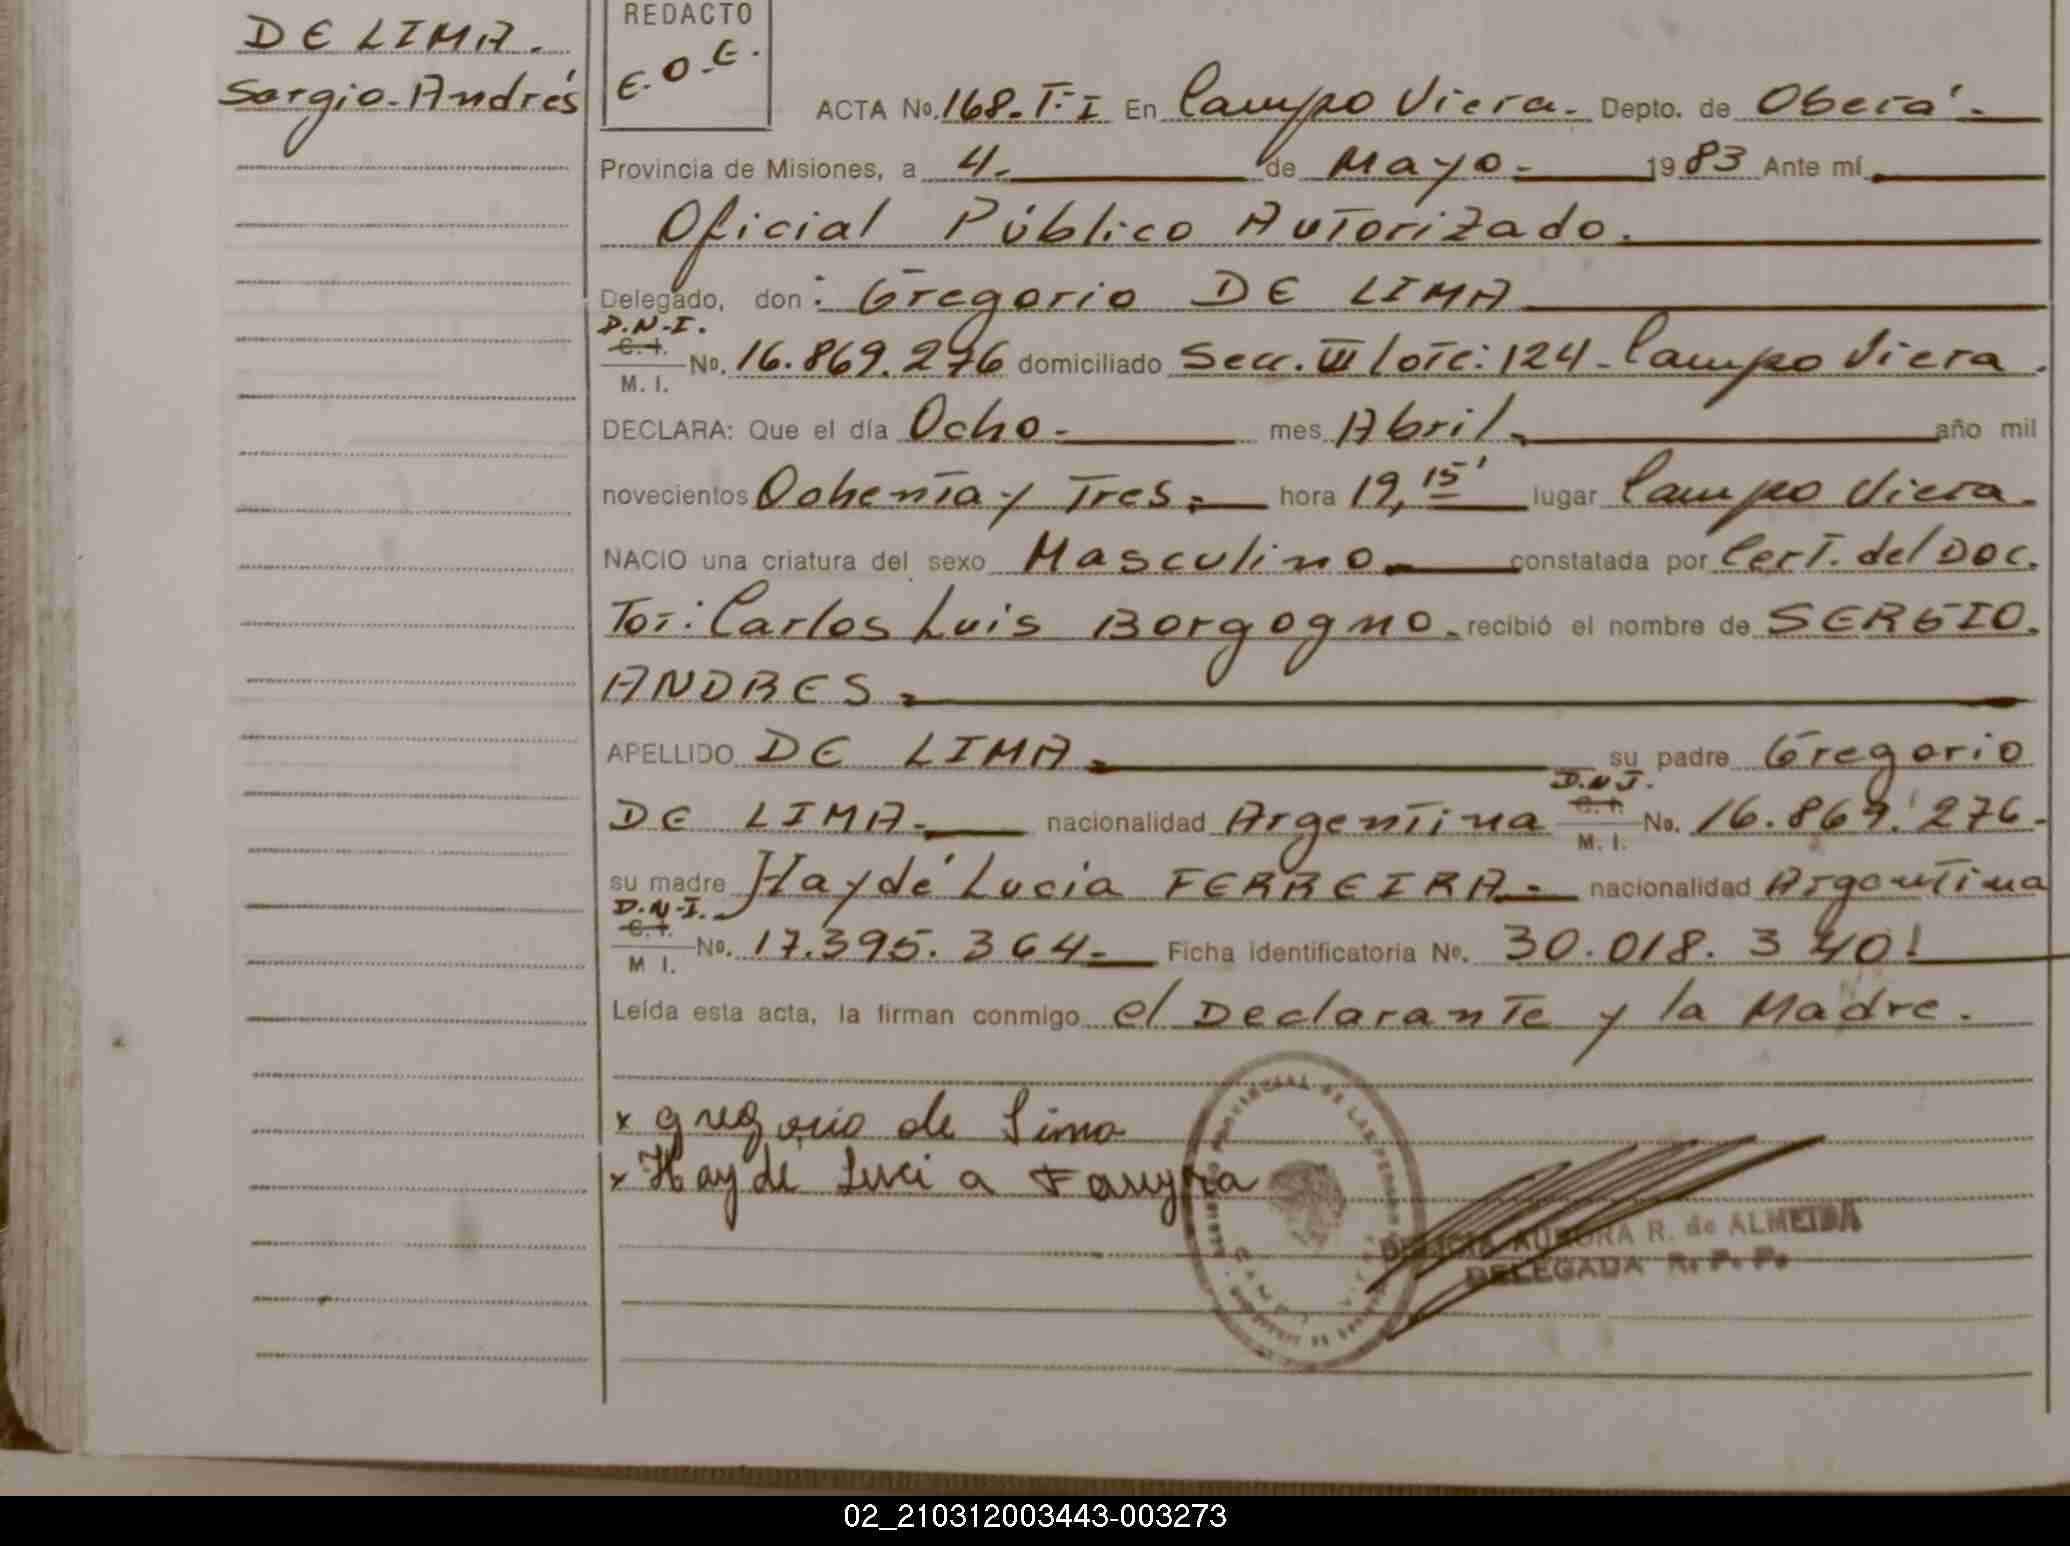 DE LIMA.
Sergio Andrés
REDACTO
E.O.E.
ACTA No. 168. T: I En Campo Viera. Depto. de Oberá.
Provincia de Misiones, a 4. de Mayo. 1983 Ante mí
Oficial Público Autorizado.
Delegado, don: Gregorio DE LIMA
D.N.I.
C. I.
M. I.
No. 16.869.276 domiciliado Secc. III lote: 124 - Campo Viera.
DECLARA: Que el día Ocho. mes Abril. año mil
novecientos Ochenta y Tres. hora 19,15' lugar Campo Viera.
NACIO una criatura del sexo Masculino. constatada por Cert. del Doc.
Tor: Carlos Luis Borgogno. recibió el nombre de SERGIO.
ANDRES.
APELLIDO DE LIMA. su padre Gregorio
D.N.I.
DE LIMA. nacionalidad Argentina C. I. M. I. No. 16.869.276.
su madre Haydé Lucia FERREIRA. nacionalidad Argentina
D.N.I.
C. I.
M I.
No. 17.395.364. Ficha identificatoria No. 30.018.340!
Leída esta acta, la firman conmigo el Declarante y la Madre.
x gregorio de Lima
x Hayde Luci a
AURORA R. de ALMEIDA
DELEGADA R. P. P.
02_210312003443-003273